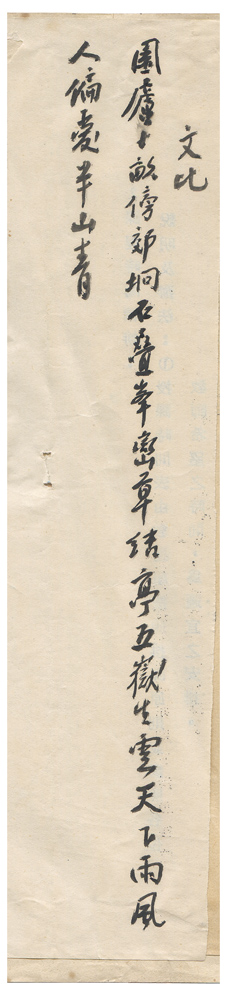 文比
園廬十畝傍郊坰石疊峯巒草結亭五嶽生雲天下雨風
人偏愛半山青